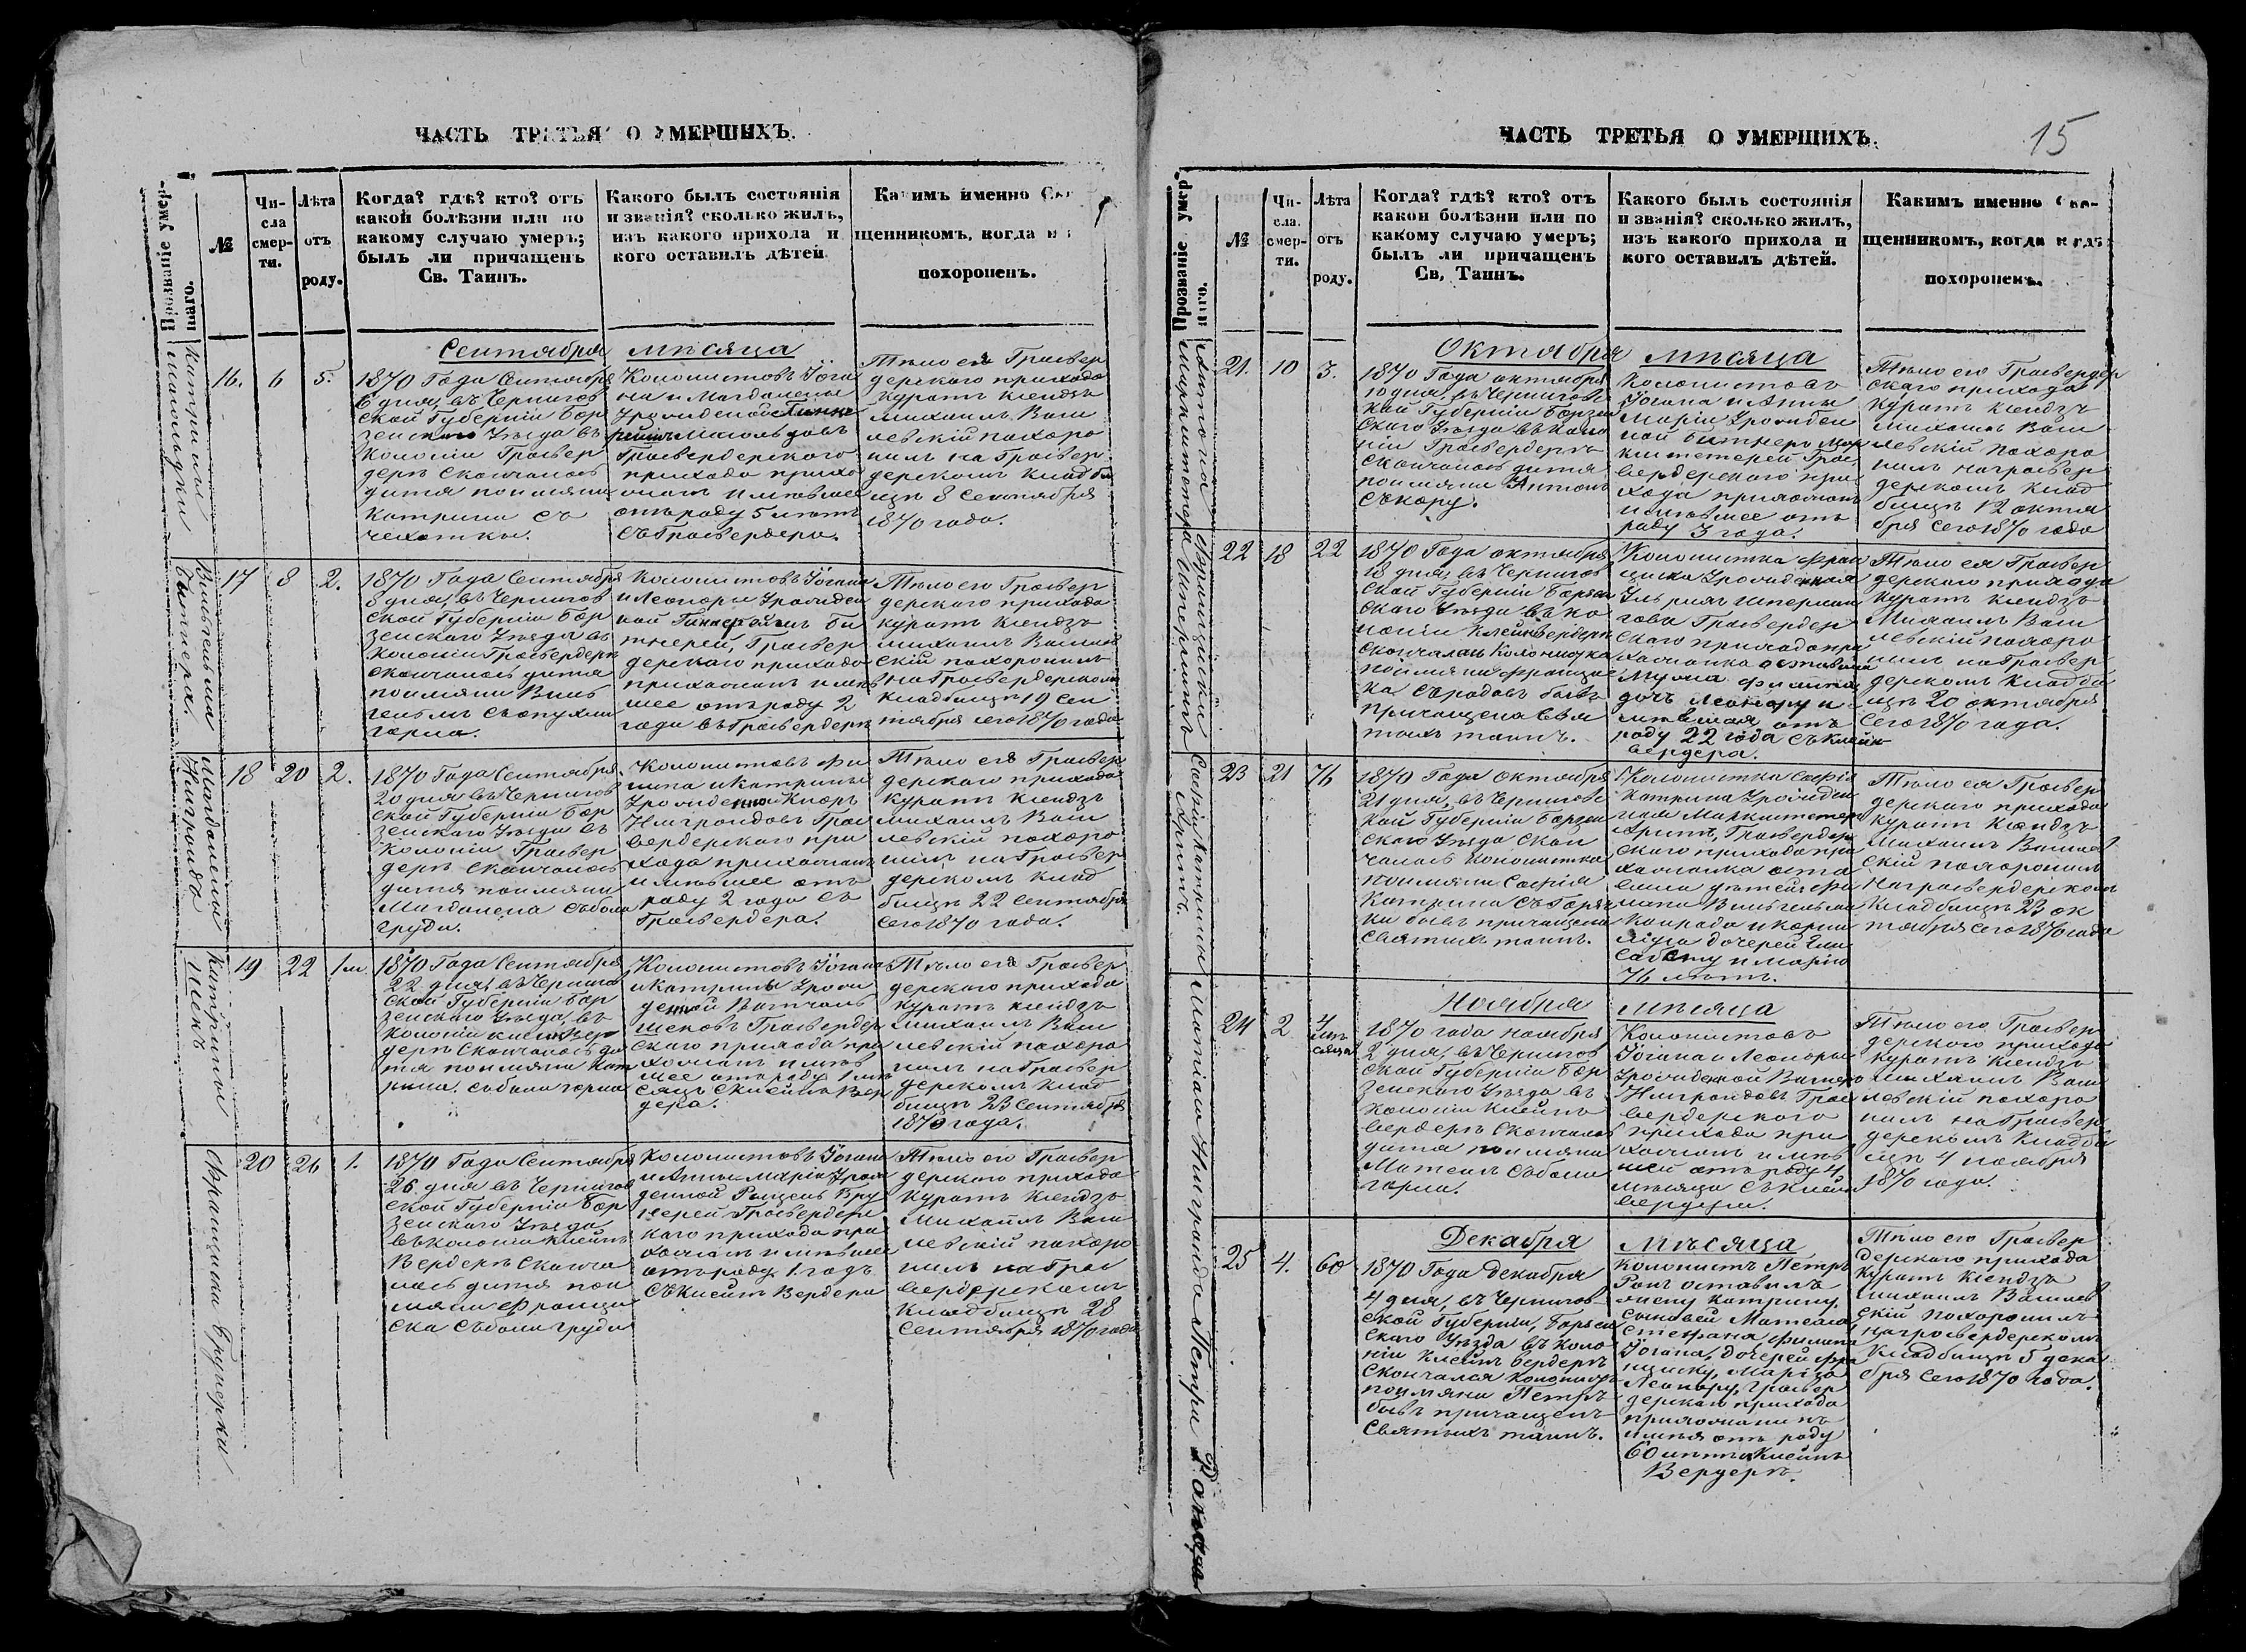 ЧАСТЬ ТРЕТЬЯ О УМЕРШИХЪ.
Прозваніе умер-
шаго.
№
Чи-
сла
смер-
ти.
Лѣта
отъ
роду.
Когда? гдѣ? кто? отъ
какой болѣзни или по
какому случаю умеръ;
былъ ли причащенъ
Св. Таинъ.
Какого былъ состоянія
и званія? сколько жилъ,
изъ какого прихода и
кого оставилъ дѣтей
Какимъ именно
щенникомъ, когда и
похороненъ.
Сентября мѣсяца
Катрины
16. 6 5.
1870 Года Сентября
6 дня, въ Чернигов
ской Губерніи Бор
зенского Уѣзда въ
Колоніи Гросвер
деръ Скончалось
дитя по имяни
Катрина съ
чехотки.
Колонистовъ Іога
на и Магдалены
Урожденой
Гросвердерского
прихода прихо
жанъ имѣвшее
отъ роду 5 лѣтъ
съ Гросвердера.
Тѣло ея Гросвер
дерского прихода
Куратъ Ксіендзъ
Михаилъ Ваш
левскій похоро
нилъ на Гросвер
дерскомъ Кладби
щѣ 8 Сентября
1870 года.
Вильгельма
Битнера.
17 8 2.
1870 Года Сентября
8 дня, въ Чернигов
ской Губерніи Бор
зенского Уѣзда въ
Колоніи Гросвердеръ
Скончалось дитя
по имяни Виль
гельмъ съ опухли
горла.
Колонистовъ Іогана
и Леоноры Урожден
ной Би
тнерей, Гросвер
дерского прихода
прихожанъ имѣв
шее отъ роду 2
года въ Гросвердеръ
Тѣло его Гросвер
дерского прихода
Куратъ Ксіендзъ
Михаилъ Вашлев
скій похоронилъ
на Гросвердерскомъ
Кладбищѣ 19 Сен
тября сего 1870 года
Магдалены
Нигронда
18 20 2.
1870 Года Сентября
20 дня въ Чернигов
ской Губерніи Бор
зенского Уѣзда въ
Колоніи Гросвер
деръ Скончалось
дитя по имяни
Магдалена съ боли
груди.
Колонистовъ Фи
липа и Катрины
Урожденной Кноръ
Нигрондовъ Грос
вердерского при
хода прихожанъ
имѣвшее отъ
роду 2 года съ
Гросвердера.
Тѣло ея Гросвер
дерского прихода
Куратъ Ксіендзъ
Михаилъ Ваш
левскій похоро
нилъ на Гросвер
дерскомъ Клад
бищѣ 22 Сентября
сего 1870 года.
Катрины
Шекъ
19 22 1 м.
1870 Года Сентября
22 дня, въ Чернигов
ской Губерніи Бор
зенского Уѣзда, въ
Колоніи Клейнъ Вер
деръ Скончалось ди
тя по имяни Кат
рина. съ боли горла
Колонистовъ Іогана
и Катрины Урож
денной
Шековъ Гросвердер
ского прихода при
хожанъ имѣв
шее отъ роду 1 мѣ
сяцъ съ Клейнъ Вер
дера.
Тѣло ея Гросвер
дерского прихода
Куратъ Ксіендзъ
Михаилъ Ваш
левскій похоро
нилъ на Гросвер
дерскомъ Клад
бищѣ 23 Сентября
1870 года.
Францишка Брунерки
20 26 1.
1870 Года Сентября
26 дня въ Чернигов
ской Губерніи Бор
зенского Уѣзда
въ Колоніи Клейнъ
Вердеръ Сконча
лось дитя по и
мяни Францы
ска съ боли груди
Колонистовъ Іогана
и Анны-Маріи Урож
денной Бру
нерей Гросвердерс
каго прихода при
хожанъ имѣвшее
отъ роду 1. годъ
съ Клейнъ Вердера
Тѣло его Гросвер
дерского прихода
Куратъ Ксіендзъ
Михаилъ Ваш
левскій похоро
нилъ на Грос
вердерскомъ
Кладбищѣ 28
Сентября 1870 года
ЧАСТЬ ТРЕТЬЯ О УМЕРШИХЪ.
15
Прозваніе умер
шаго.
№
Чи-
сла.
смер-
ти.
Лѣта
отъ
роду.
Когда? гдѣ? кто? отъ
какои болѣзни или по
какому случаю умеръ;
былъ ли причащенъ
Св, Таинъ.
Какого былъ состоянія
и званія? сколько жилъ,
изъ какого прихода и
кого оставилъ дѣтей.
Какимъ именно Свя-
щенникомъ, когда и гдѣ
похороненъ.
Октября мѣсяца
Антона
21. 10 3.
1870 Года октября
10 дня, въ Черниговс
кой Губерніи Борзен
ского Уѣзда въ Коло
ніи Гросвердеръ
Скончалось дитя
по имяни Антонъ
съ кору.
Колонистовъ
Іогана и Анны
Маріи Урожден
ной Битнеръ Мар
кштетерей Грос
вердерского при
хода прихожанъ
имѣвшее отъ
роду 3 года.
Тѣло его Гросвердер
скаго прихода
Куратъ Ксіендзъ
Михаилъ Ваш
левскій похоро
нилъ на Гросвер
дерскомъ Клад
бищѣ 12 октя
бря сего 1870 года
Францишки
22 18 22
1870 Года октября
18 дня, въ Чернигов
ской Губерніи Борзен
ского Уѣзда въ Ко
лоніи Клейнвердеръ
Скончалась Колонистка
по имяни Францыс
ка съ родовъ бывъ
причащена Свя
тыхъ таинъ.
Колонистка Фран
циска Урожденная
Ульрихъ Имерман
гова Гросвердер
ского прихода при
хожанка оставила
мужа Филипа
дочъ Леонору и
мѣвшая отъ
роду 22 года съ Клейн
вердера.
Тѣло ея Гросвер
дерского прихода
Куратъ Ксіендзъ
Михаилъ Ваш
левскій похоро
нилъ на Гросвер
дерскомъ Кладби
щѣ 20 октября
сего 1870 года.
Софіи Катрины
23 21 76
1870 Года Октября
21 дня, въ Черниговс
кой Губерніи Борзен
ского Уѣзда Скон
чалась Колонистка
по имяни Софія
Катрина съ Горяч
ки бывъ причащена
Святыхъ таинъ.
Колонистка Софія
Катрина Урожден
ная Маркштетеръ
Гросвердер
ского прихода при
хожанка оста
вила дѣтей Фи
липа Вильгельма
Конрада и
дочерей Ели
сабету и Марію
76 лѣтъ.
Тѣло ея Гросвер
дерского прихода
Куратъ Ксіендзъ
Михаилъ Вашлев
скій похоронилъ
на Гросвердерскомъ
Кладбищѣ 23 ок
тября сего 1870 года
Ноября мѣсяца
Нигронда
24 2 4
мѣ
сяца
1870 года ноября
2 дня, въ Чернигов
ской Губерніи Бор
зенского Уѣзда въ
Колоніи Клейнъ
вердеръ Скончалось
дитя по имяни
Матеасъ съ боли
горла.
Колонистовъ
Іогана и Леоноры
Урожденной Вагнеръ
Нигрондовъ Грос
вердерского
прихода при
хожанъ имѣв
шей отъ роду 4
мѣсяца съ Клейн
вердера.
Тѣло его Гросвер
дерского прихода
Куратъ Ксіендзъ
Михаилъ Ваш
левскій похоро
нилъ на Гросвер
дерскомъ Кладби
щѣ 4 ноября
1870 года.
Декабря мѣсяца
Петра
25 4. 60
1870 Года Декабря
4 дня, въ Чернигов
ской Губерніи, Борзен
ского Уѣзда въ Коло
ніи Клейнъ вердеръ
Скончался Колонистъ
по имяни Петръ
бывъ причащенъ
Святыхъ таинъ.
Колонистъ Петръ
оставилъ
жену Катрину,
сыновей Матеаса
Стефана Филипа
Іогана, дочерей Фра
нциску, Марію
Леонору, Гросвер
дерского прихода
прихожанинъ
имѣя отъ роду
60 лѣтъ Клейнъ
Вердеръ.
Тѣло его Гросвер
дерского прихода
Куратъ Ксіендзъ
Михаилъ Вашлев
скій похоронилъ
на Гросвердерскомъ
Кладбищѣ 5 дека
бря сего 1870 года.